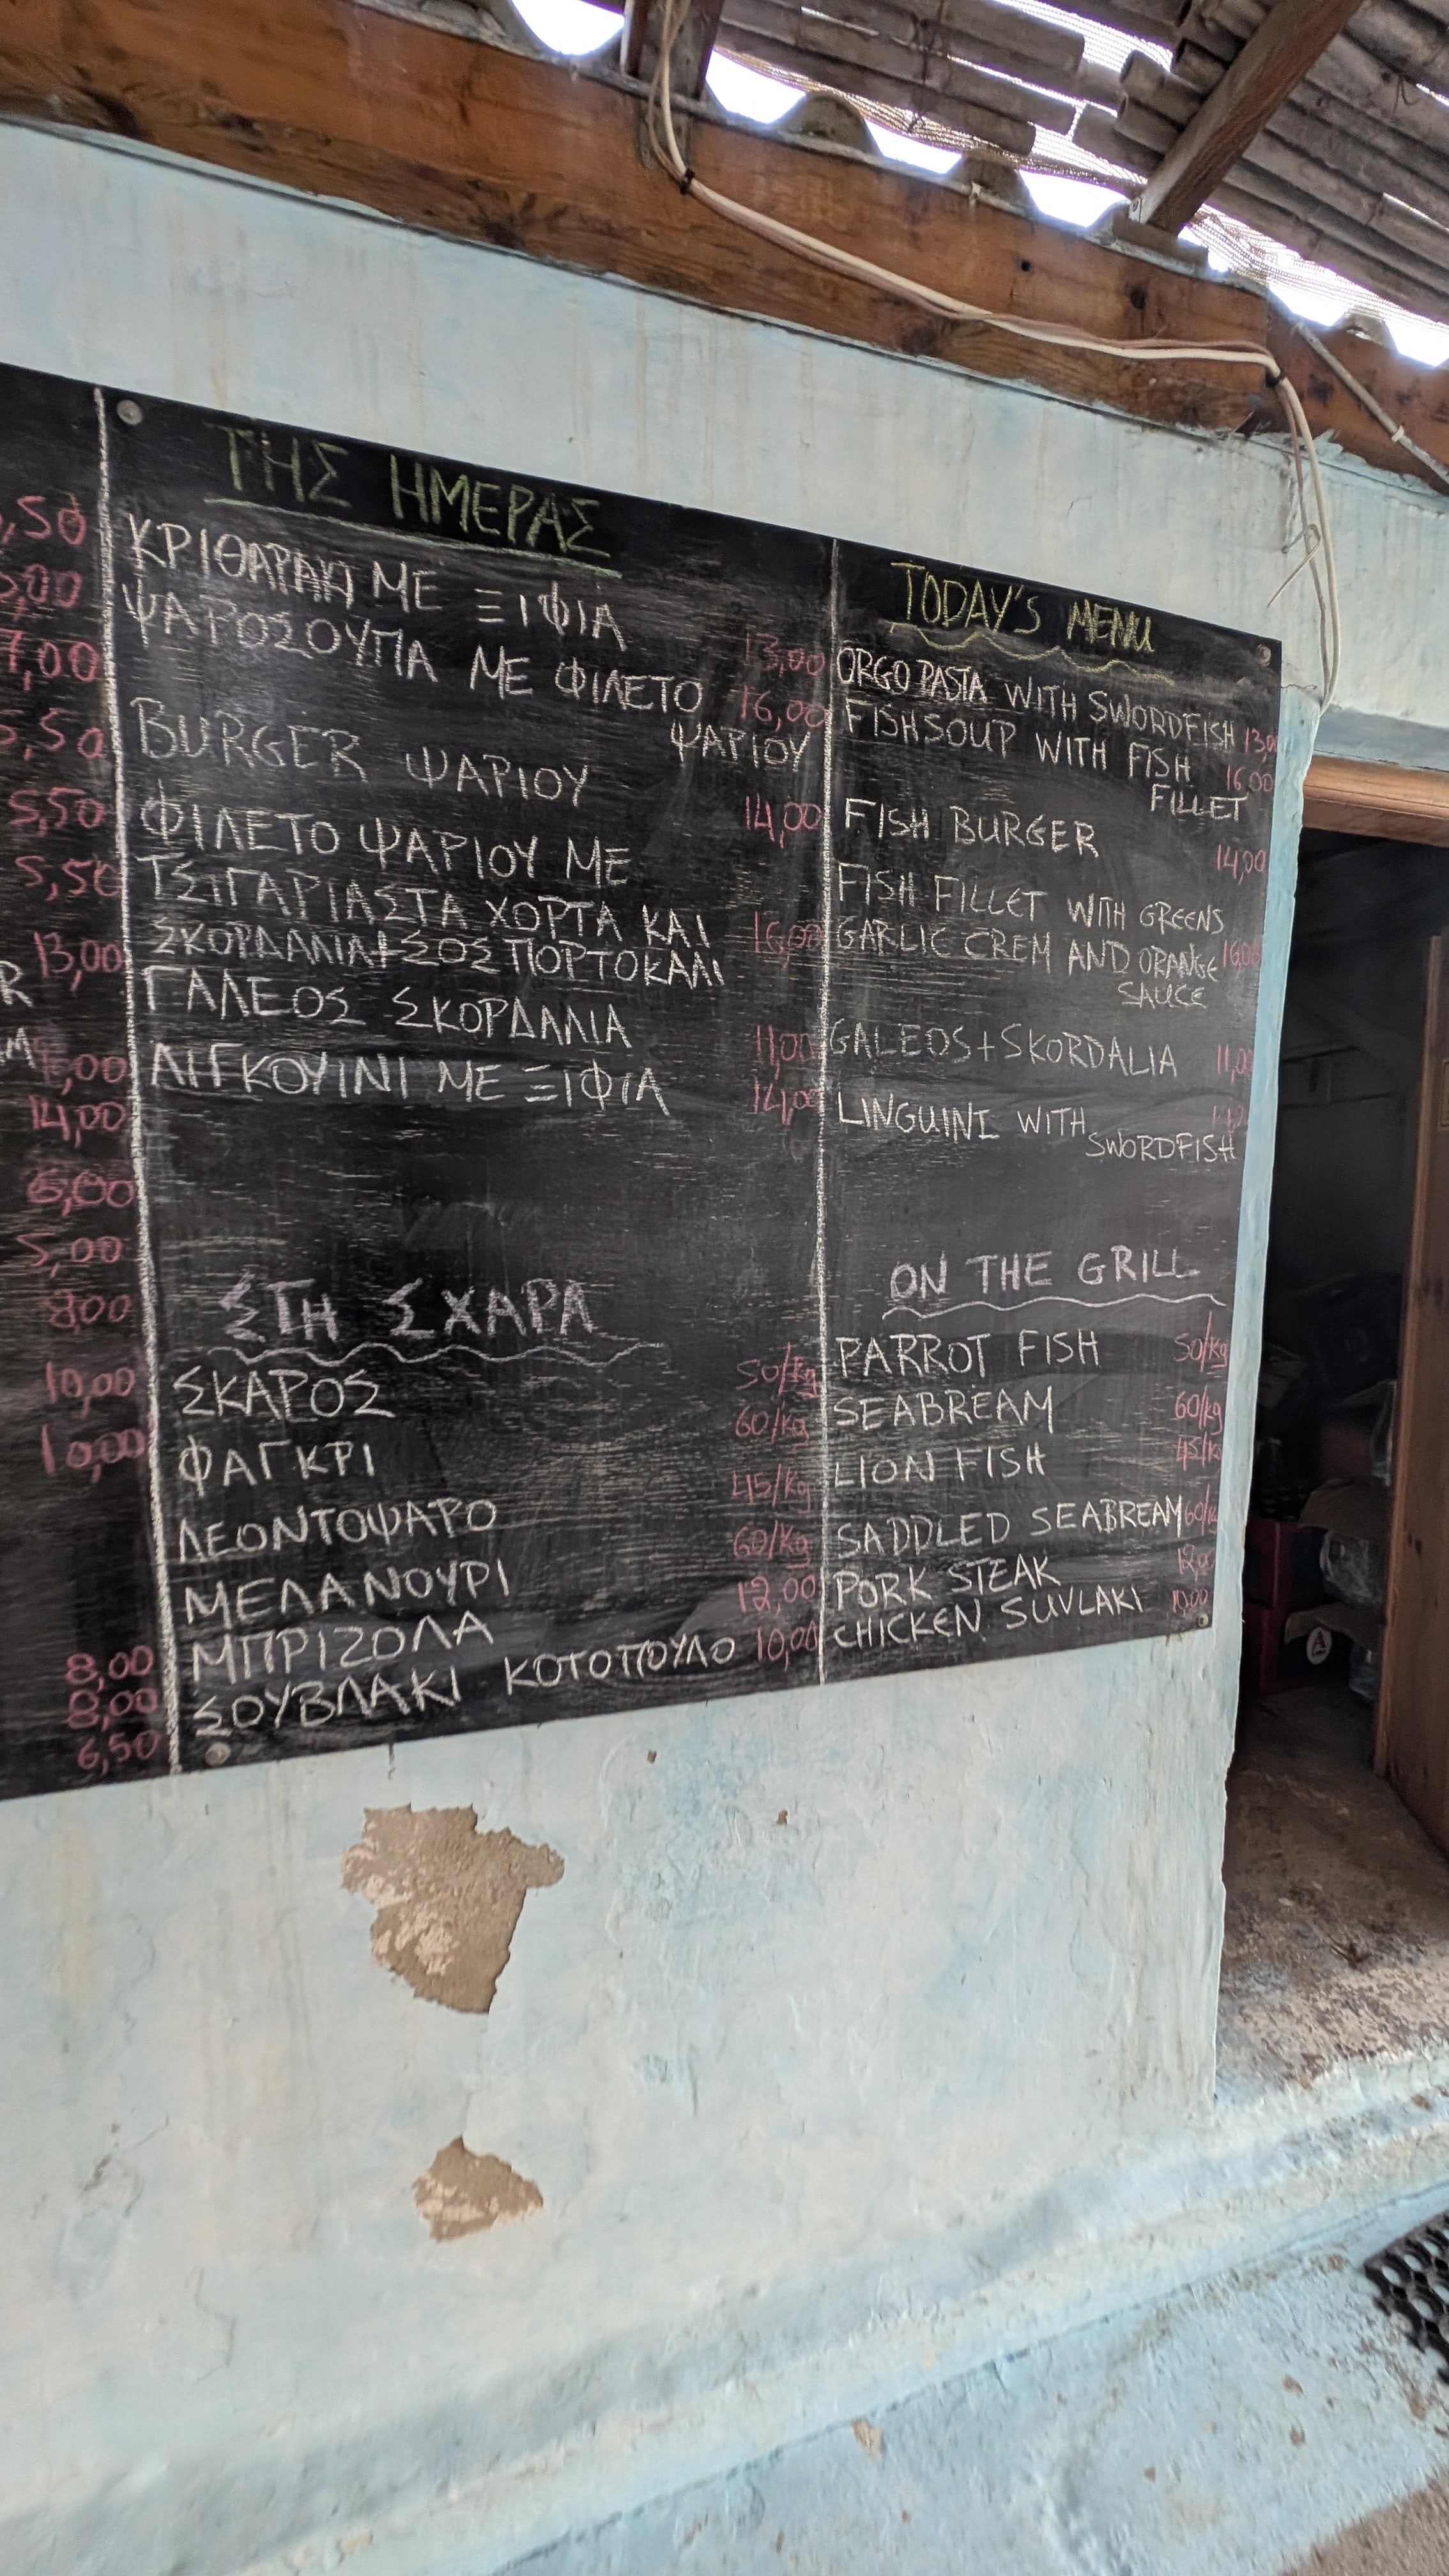 ,50
7,00
5,50
5,50
13,00
R
14,00
6,00
5,00
8,00
10,00
10,00
8,00
8,00
6,50
ΤΗΣ ΗΜΕΡΑΣ
ΚΡΙΘΑΡΑΚΙ ΜΕ ΞΙΦΙΑ 13,00
ΨΑΡΟΣΟΥΠΑ ΜΕ ΦΙΛΕΤΟ 16,00
ΨΑΡΙΟΥ
BURGER ΨΑΡΙΟΥ 14,00
ΦΙΛΕΤΟ ΨΑΡΙΟΥ ΜΕ
ΤΣΙΓΑΡΙΑΣΤΑ ΧΟΡΤΑ ΚΑΙ 16,00
ΣΚΟΡΔΑΛΙΑ+ΣΟΣ ΠΟΡΤΟΚΑΛΙ
ΓΑΛΕΟΣ ΣΚΟΡΔΑΛΙΑ 11,00
ΛΙΓΚΟΥΙΝΙ ΜΕ ΞΙΦΙΑ 14,00
ΣΤΗ ΣΧΑΡΑ
ΣΚΑΡΟΣ 50/kg
ΦΑΓΚΡΙ 60/kg
ΛΕΟΝΤΟΨΑΡΟ 45/kg
ΜΕΛΑΝΟΥΡΙ 60/kg
ΜΠΡΙΖΟΛΑ 12,00
ΣΟΥΒΛΑΚΙ ΚΟΤΟΠΟΥΛΟ 10,00
TODAY'S MENU
ORGO PASTA WITH SWORDFISH 13,0
FISHSOUP WITH FISH 16,00
FILLET
FISH BURGER 14,00
FISH FILLET WITH GREENS
GARLIC CREM AND ORANGE 16,00
SAUCE
GALEOS+SKORDALIA 11,00
LINGUINI WITH
SWORDFISH
ON THE GRILL
PARROT FISH 50/kg
SEABREAM 60/kg
LION FISH 45/kg
SADDLED SEABREAM 60/kg
PORK STEAK 12,00
CHICKEN SUVLAKI 10,00